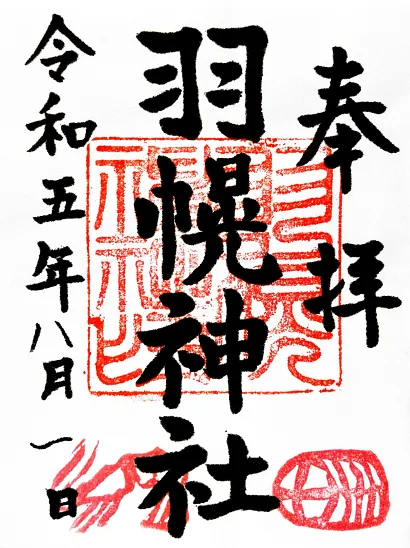 奉拝
羽幌神社
令和五年八月一日